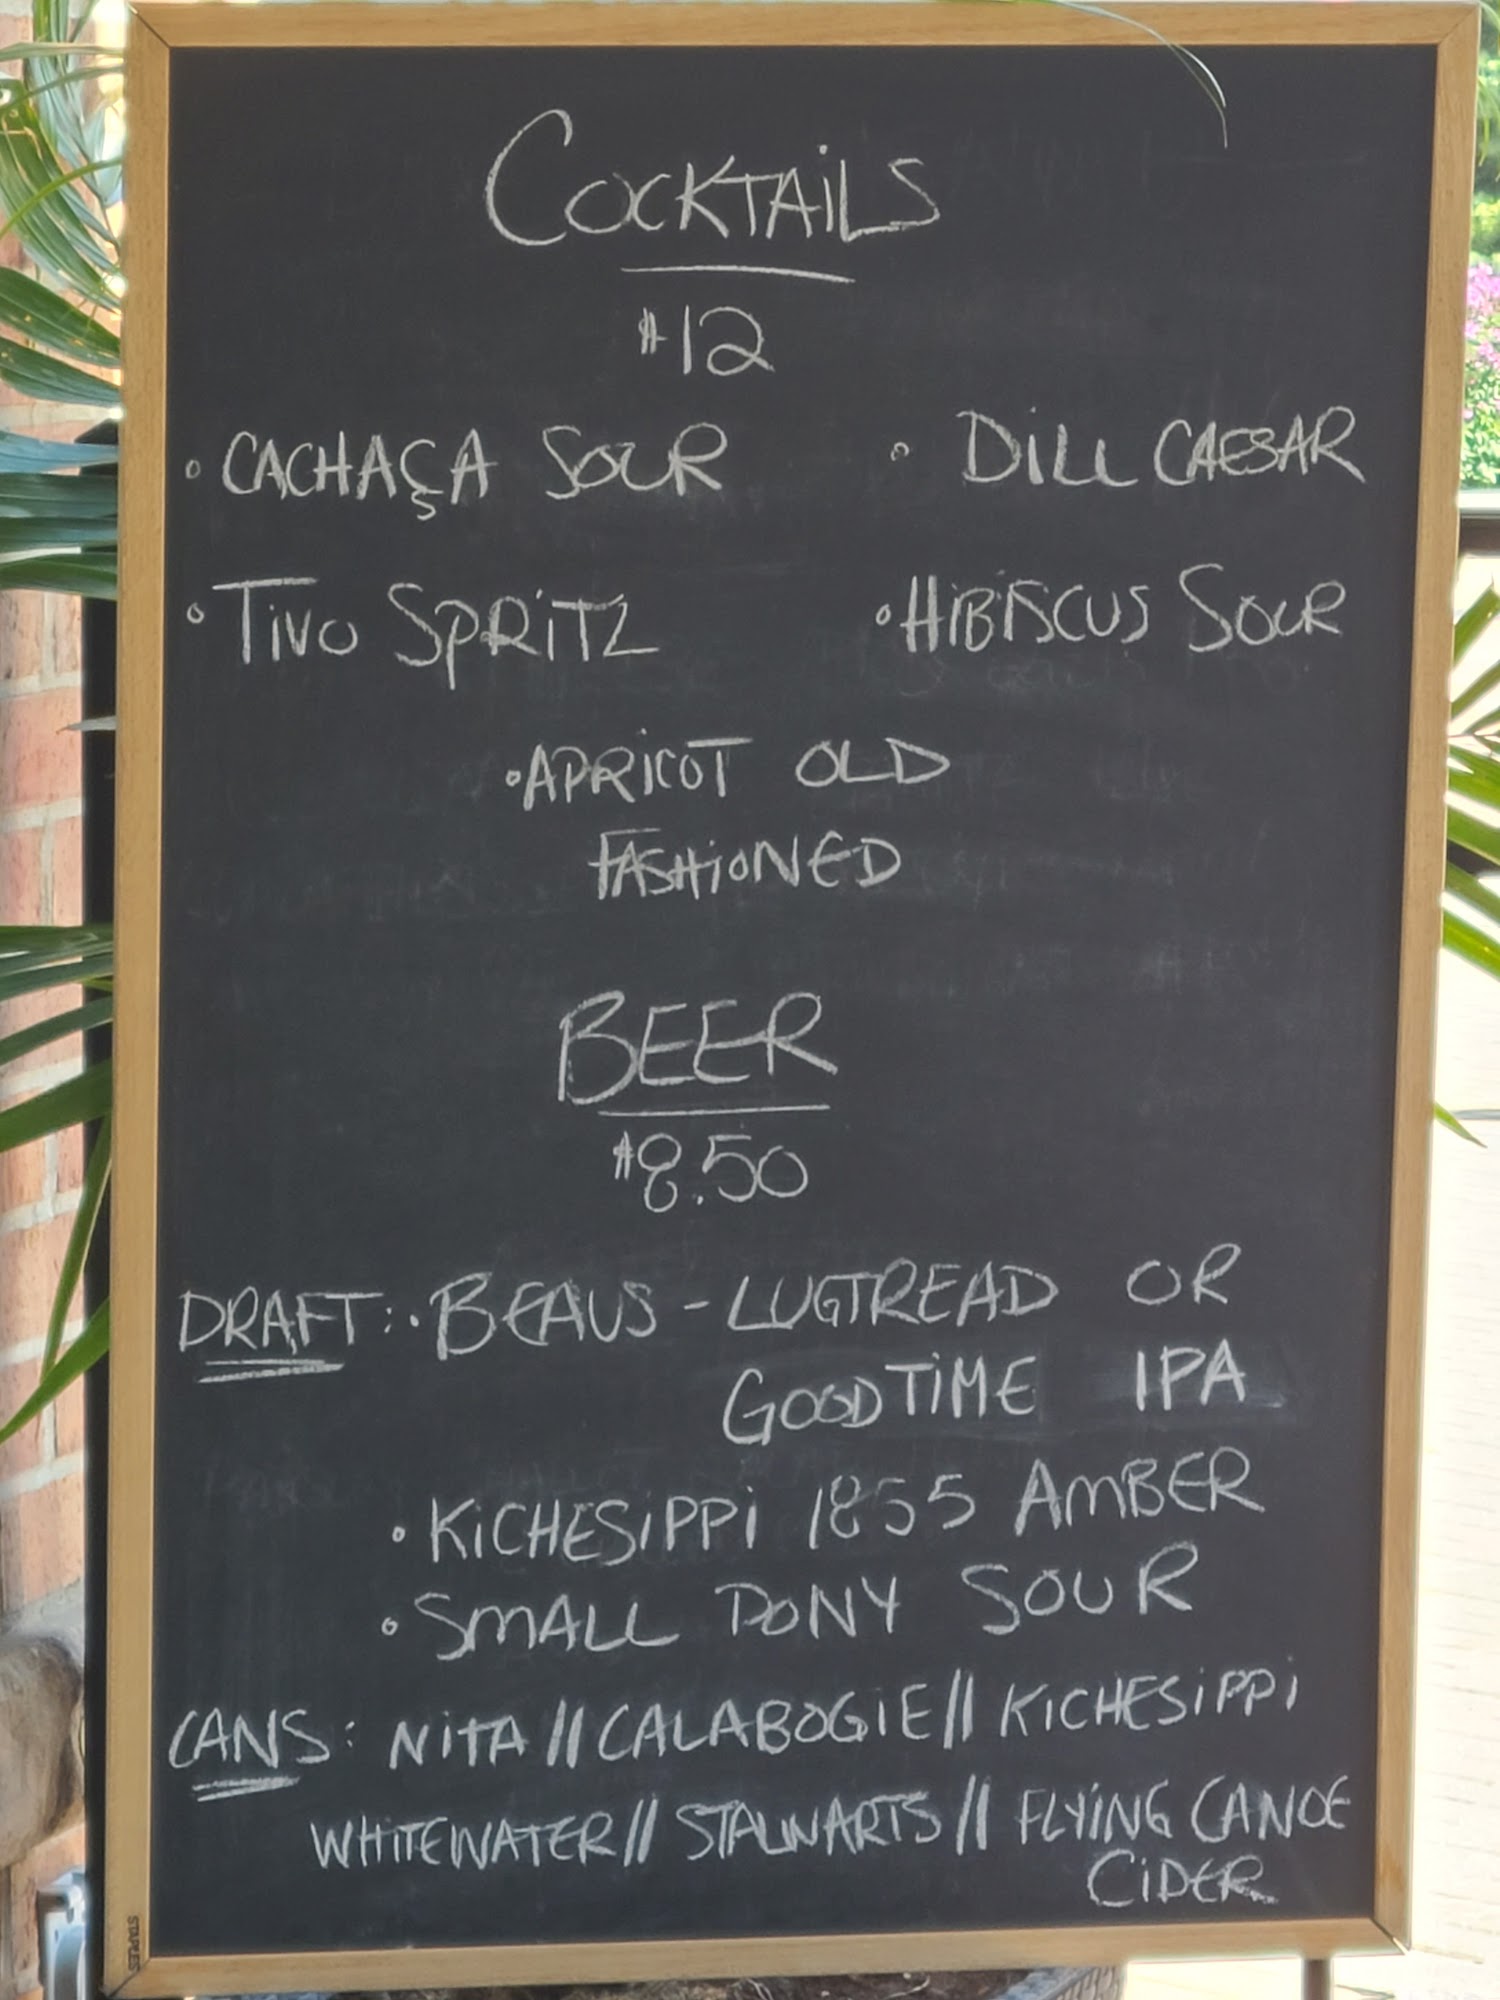 COCKTAILS
$12
• CACHAÇA SOUR
• DILL CAESAR
• TIVO SPRITZ
• HIBISCUS SOUR
• APRICOT OLD
FASHIONED
BEER
$8.50
DRAFT: • BEAUS - LUGTREAD OR
GOOD TIME IPA
• KICHESIPPI 1855 AMBER
• SMALL PONY SOUR
CANS: NITA // CALABOGIE // KICHESIPPI
WHITEWATER // STALWARTS // FLYING CANOE
CIDER
STAPLES